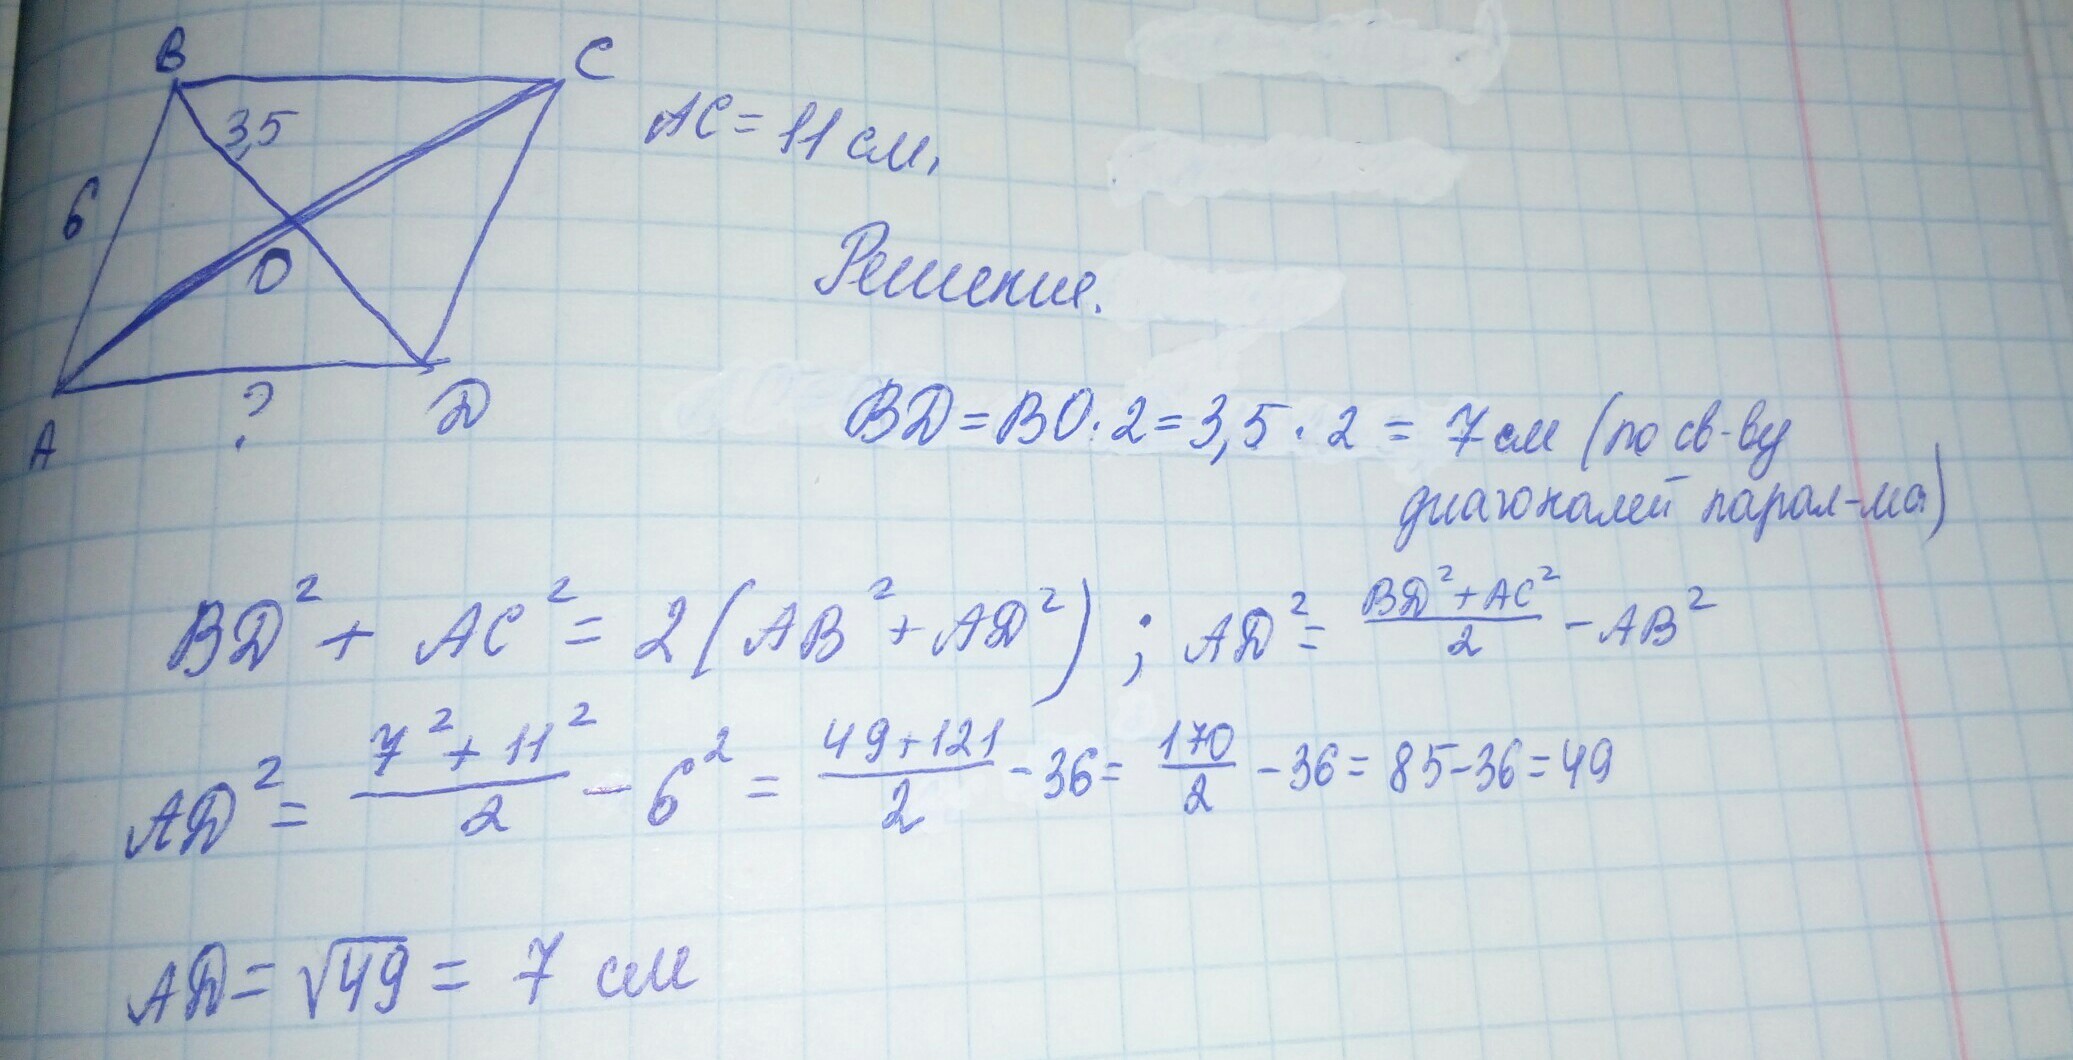 B
C
3,5
AC = 11 см,
6
O
Решение.
A
?
D
BD = BO · 2 = 3,5 · 2 = 7 см (по св-ву
диагоналей парал-ма)
BD² + AC² = 2 (AB² + AD²) ; AD² = (BD² + AC²)/2 - AB²
AD² = (7² + 11²)/2 - 6² = (49 + 121)/2 - 36 = 170/2 - 36 = 85 - 36 = 49
AD = √49 = 7 см